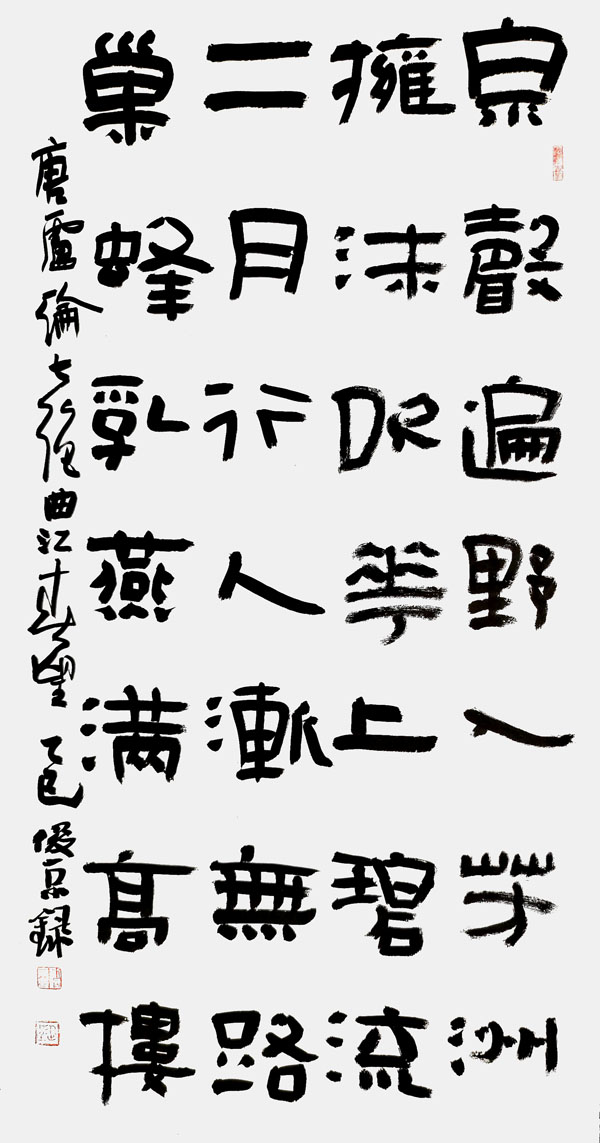 泉聲遍野入芳洲
擁沫吹花上碧流
二月行人漸無路
巢蜂乳燕满高樓
唐盧綸七絕曲江春望 乙巳 俊京錄